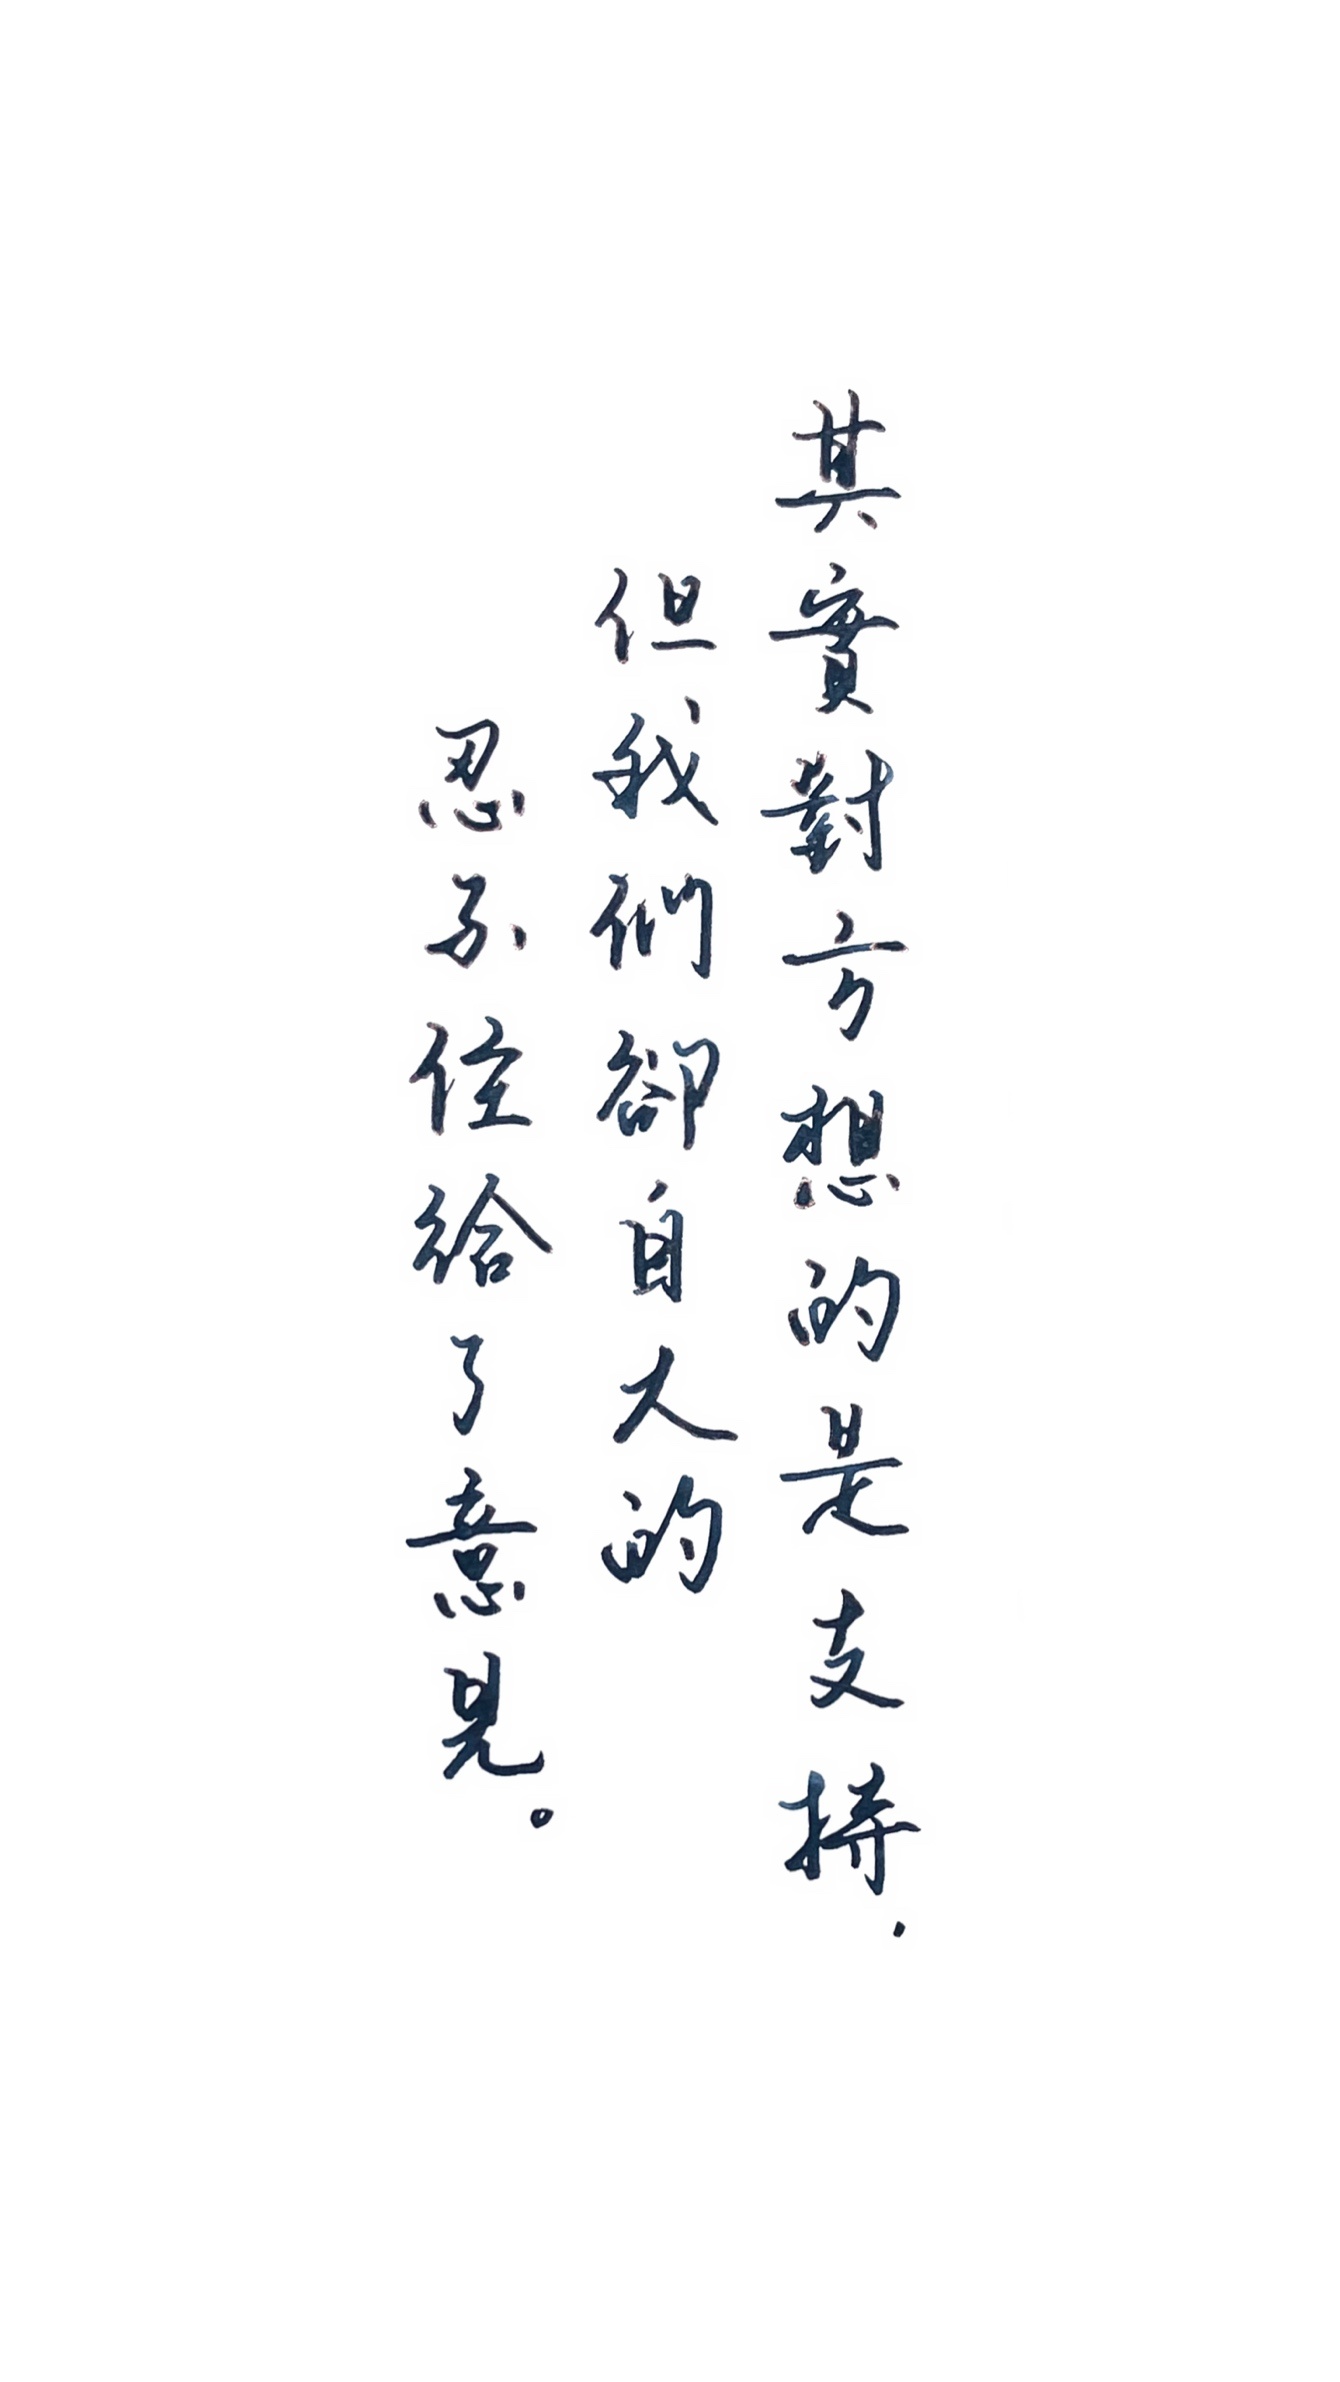 其實對方想的是支持，
但我們卻自大的
忍不住給了意見。